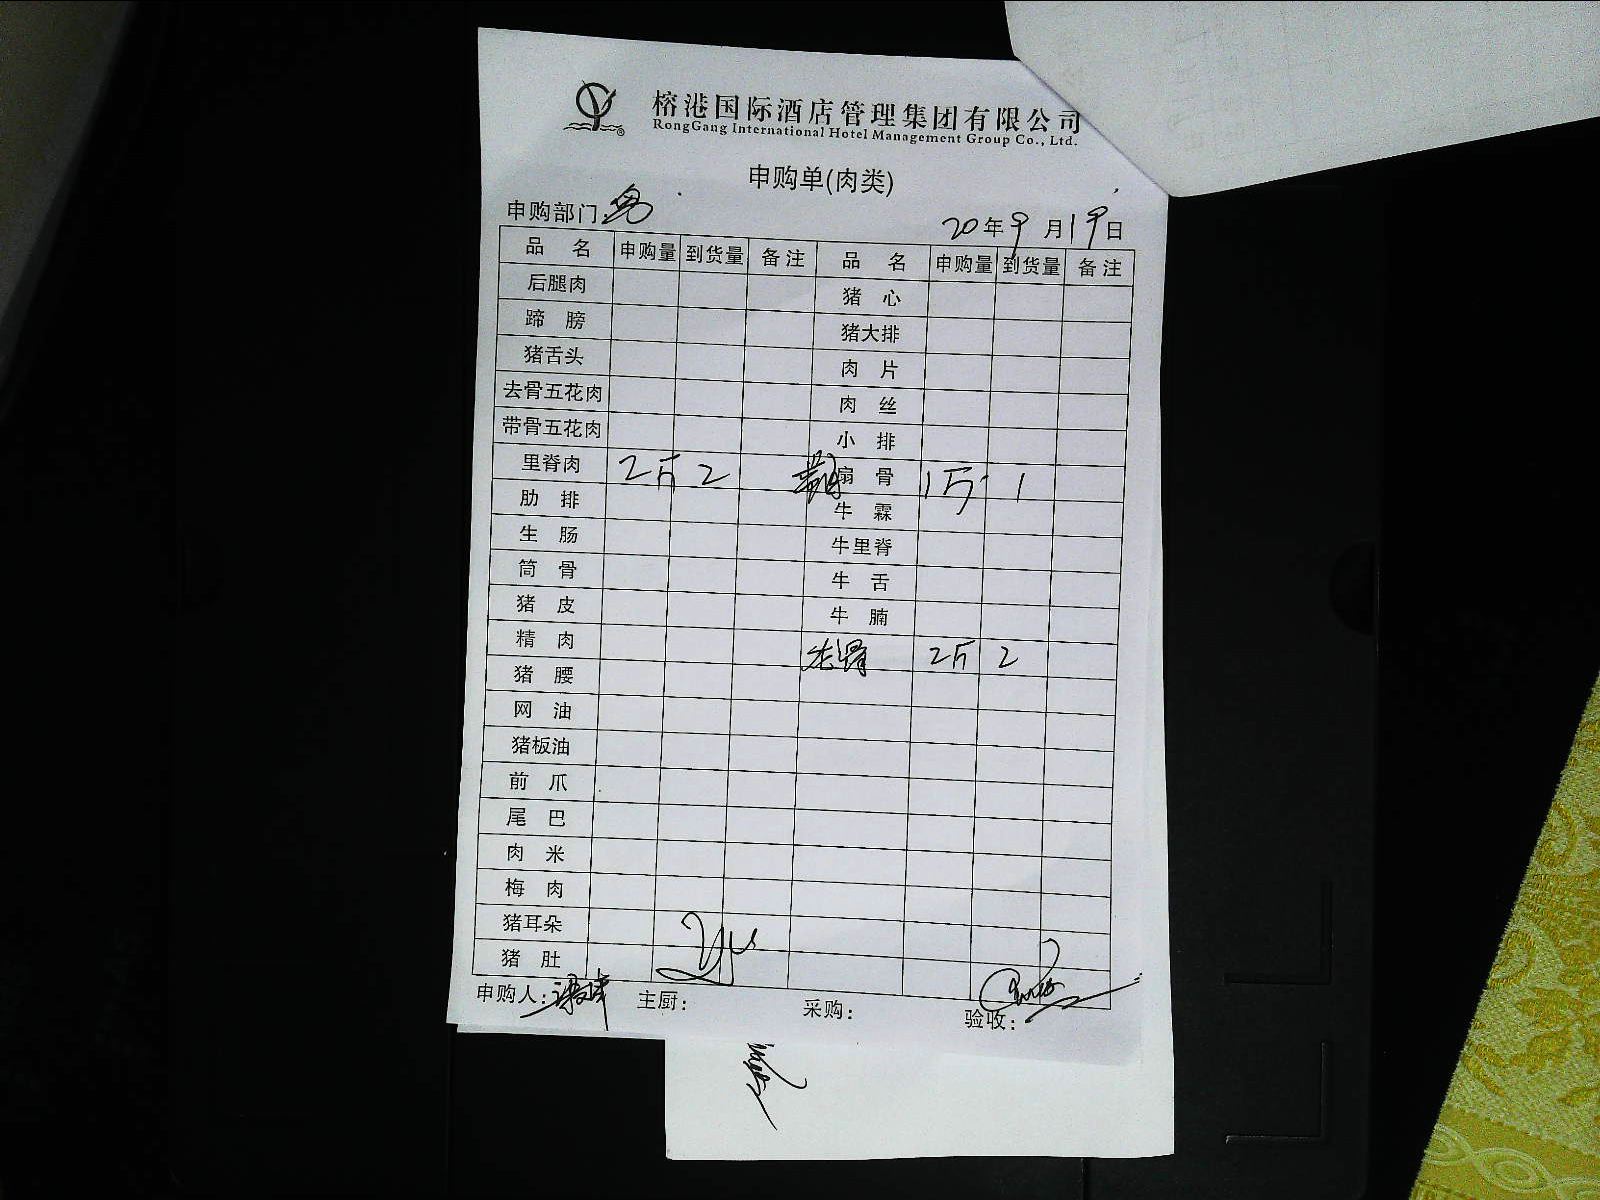 榕港国际酒店管理集团有限公司
RongGang International Hotel Management Group Co., Ltd.
申购单(肉类)
申购部门:
20年9月19日
品 名 申购量 到货量 备注 品 名 申购量 到货量 备注
后腿肉 猪 心
蹄 膀 猪大排
猪舌头 肉 片
去骨五花肉 肉 丝
带骨五花肉 小 排
里脊肉 2斤 2 扇 骨 1斤 1
肋 排 牛 霖
生 肠 牛里脊
筒 骨 牛 舌
猪 皮 牛 腩
精 肉 龙骨 2斤 2
猪 腰
网 油
猪板油
前 爪
尾 巴
肉 米
梅 肉
猪耳朵
猪 肚
申购人: 主厨: 采购: 验收: